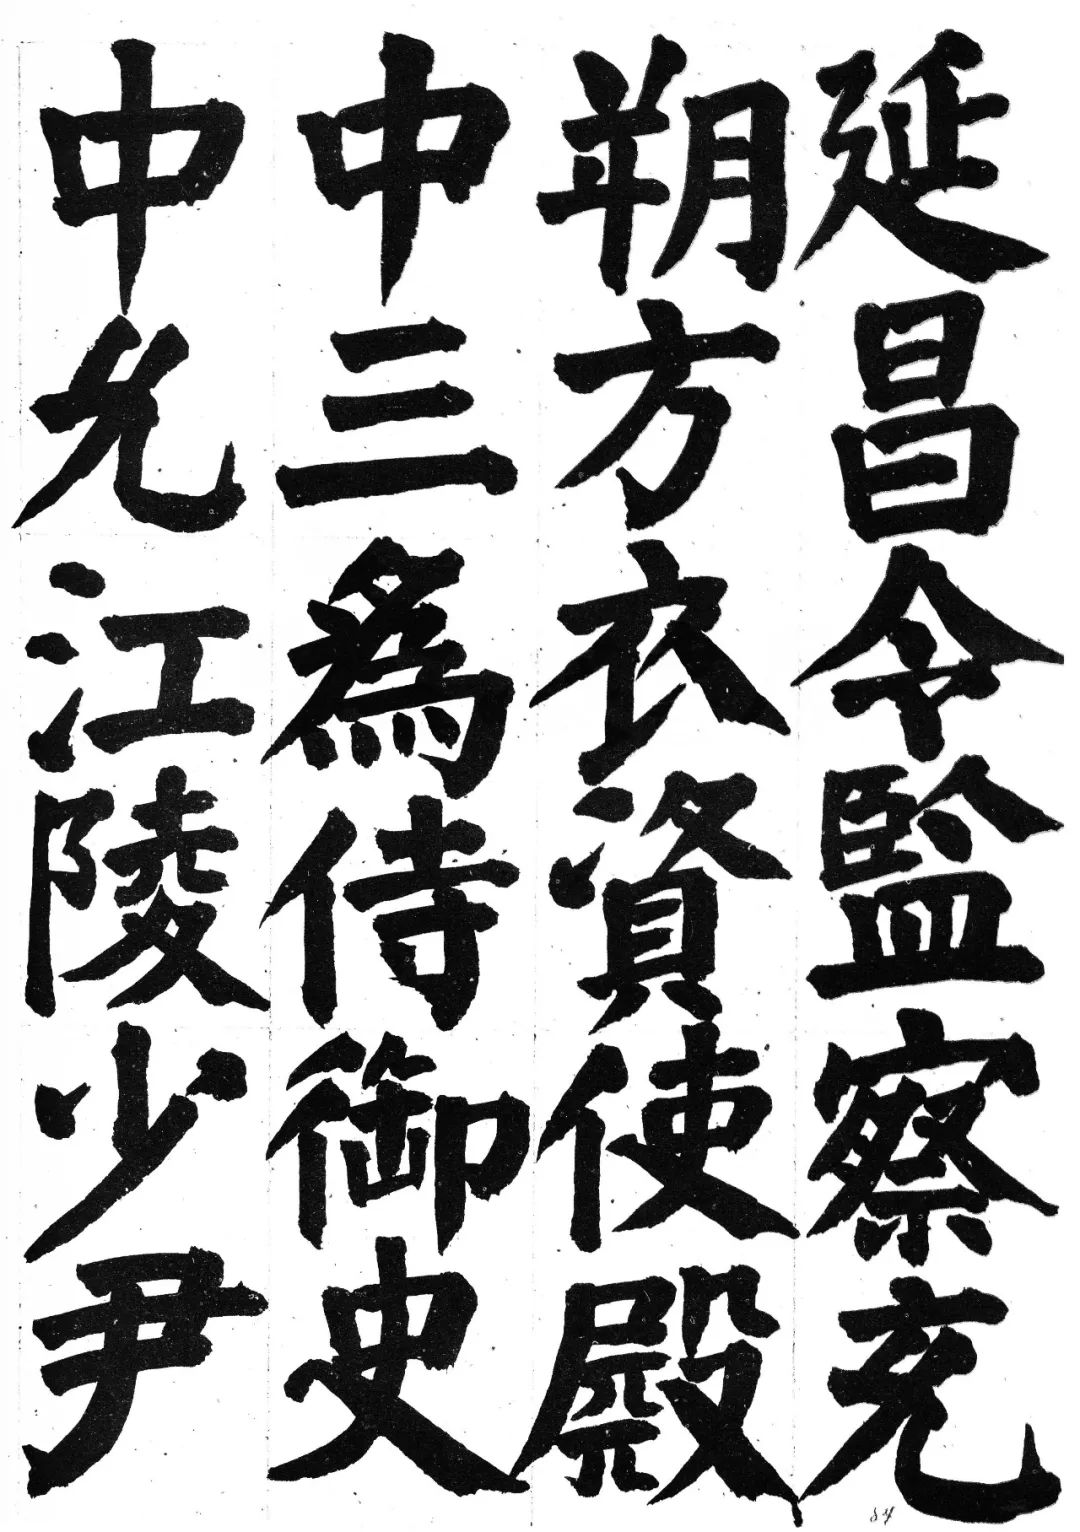 延昌令監察充
朔方衣資使殿
中三爲侍御史
中允江陵少尹
84